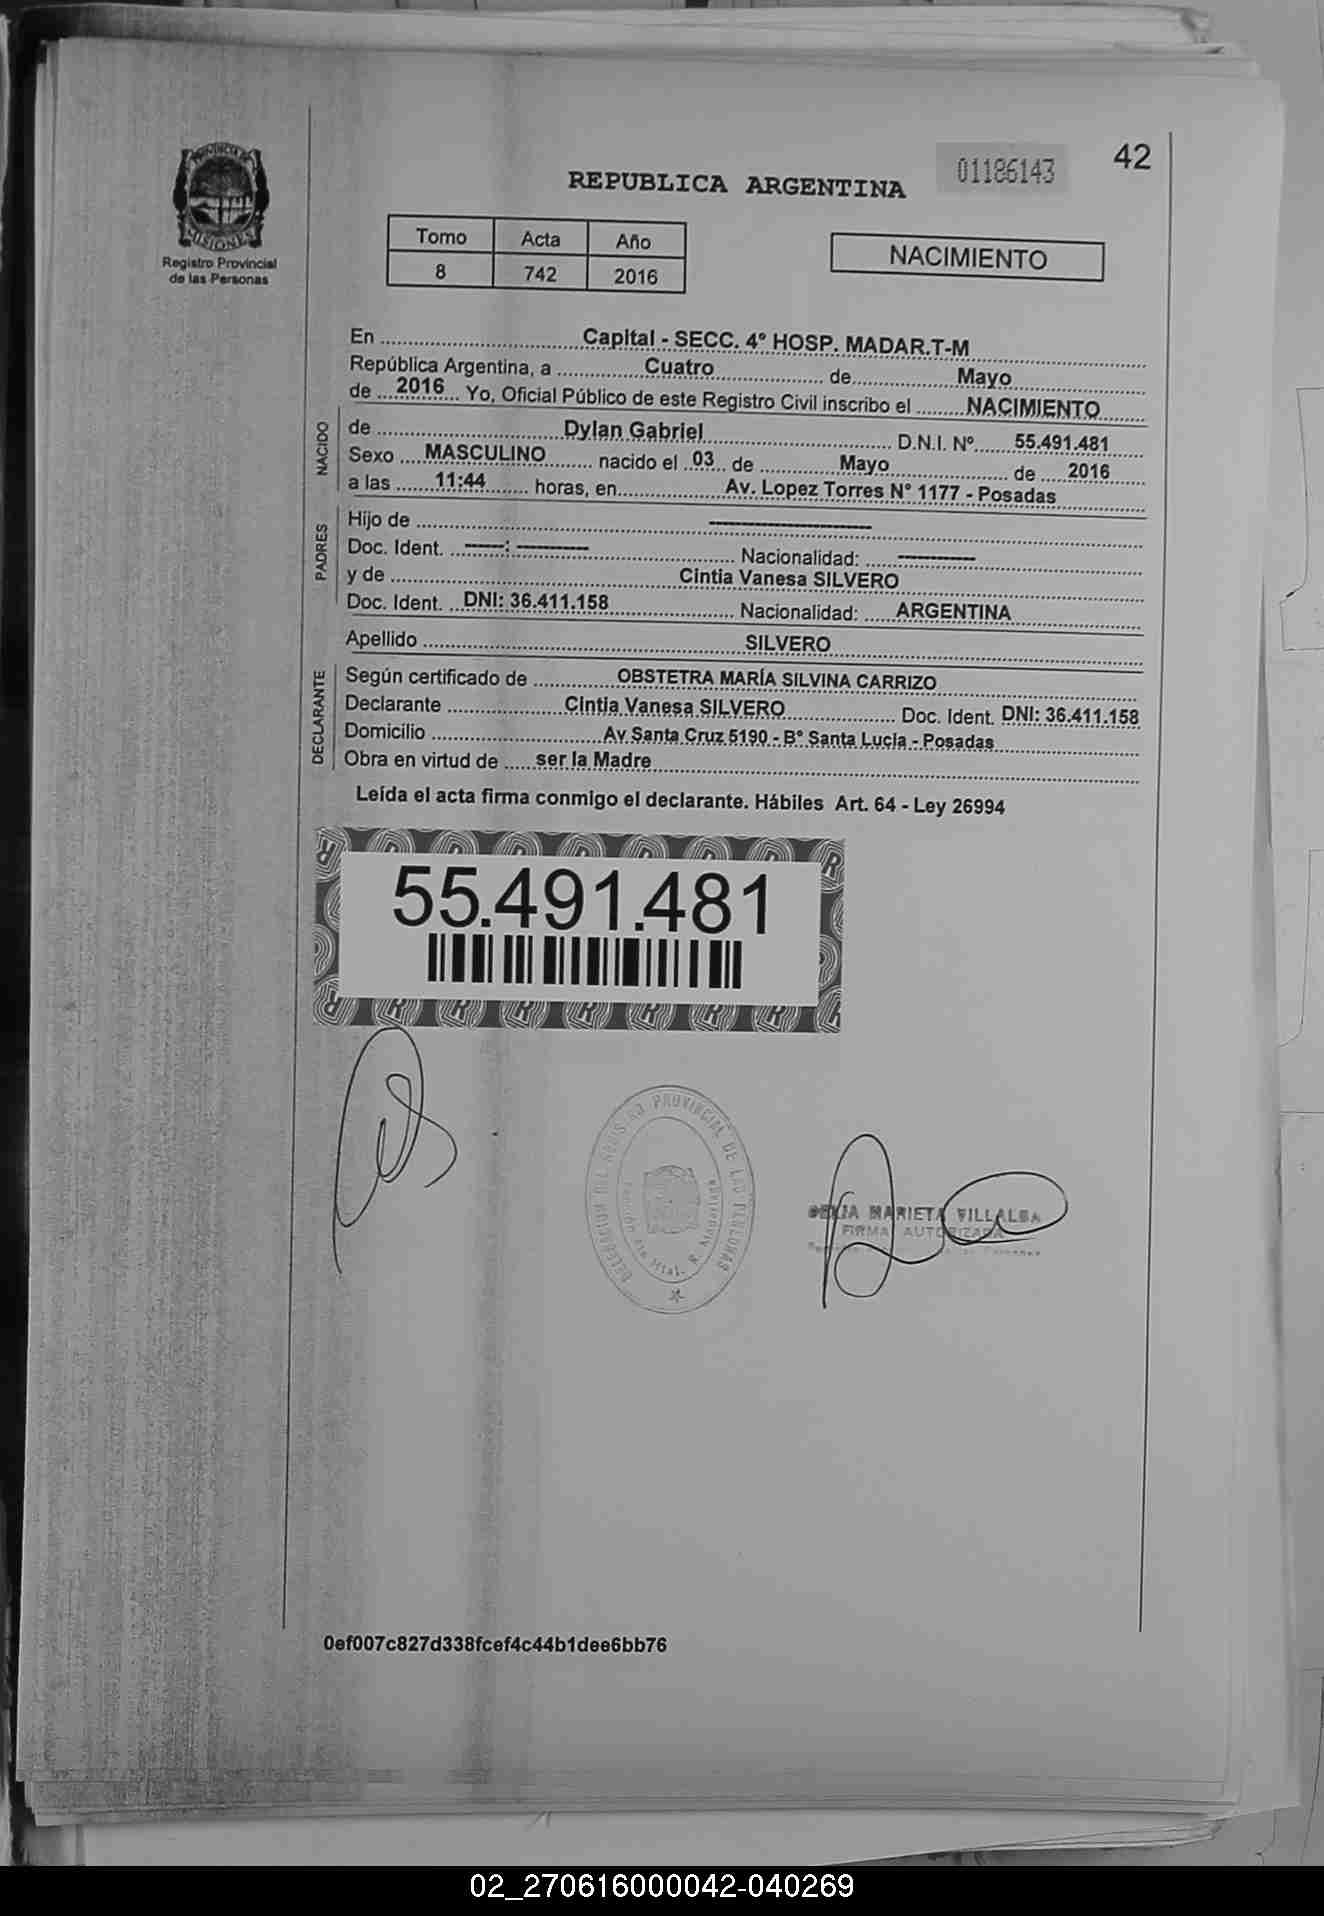 PROVINCIA DE
MISIONES
Registro Provincial
de las Personas
REPUBLICA ARGENTINA
01186143
42
Tomo Acta Año
8 742 2016
NACIMIENTO
En Capital - SECC. 4º HOSP. MADAR.T-M
República Argentina, a Cuatro de Mayo
de 2016 Yo, Oficial Público de este Registro Civil inscribo el NACIMIENTO
NACIDO
de Dylan Gabriel D.N.I. Nº 55.491.481
Sexo MASCULINO nacido el 03 de Mayo de 2016
a las 11:44 horas, en Av. Lopez Torres N° 1177 - Posadas
PADRES
Hijo de --------------------
Doc. Ident. -----: --------- Nacionalidad: ----------
y de Cintia Vanesa SILVERO
Doc. Ident. DNI: 36.411.158 Nacionalidad: ARGENTINA
Apellido SILVERO
DECLARANTE
Según certificado de OBSTETRA MARÍA SILVINA CARRIZO
Declarante Cintia Vanesa SILVERO Doc. Ident. DNI: 36.411.158
Domicilio Av Santa Cruz 5190 - B° Santa Lucía - Posadas
Obra en virtud de ser la Madre
Leída el acta firma conmigo el declarante. Hábiles Art. 64 - Ley 26994
55.491.481
DELEGACION DEL REGISTRO PROVINCIAL DE LAS PERSONAS
MARIETA VILLALBA
FIRMA AUTORIZADA
0ef007c827d338fcef4c44b1dee6bb76
02_270616000042-040269